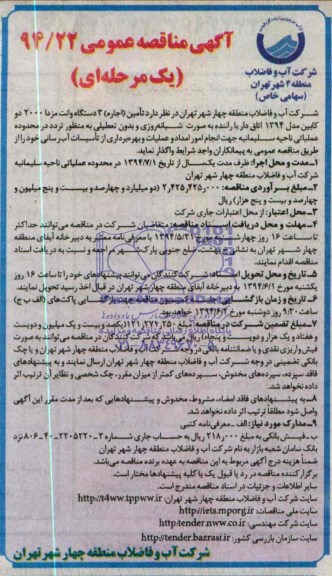 آگهی مناقصه عمومی ۹۴/۲۲
(یک مرحله‌ای)
شرکت آب و فاضلاب
منطقه ۴ شهر تهران
(سهامی خاص)
شرکت آب و فاضلاب منطقه چهار شهر تهران در نظر دارد تأمین (اجاره) ۳ دستگاه وانت مزدا ۲۰۰۰ دو
کابین مدل ۱۳۹۴ اتاق‌دار با راننده به صورت شبانه‌روزی و بدون تعطیلی به منظور تردد در محدوده
عملیاتی ناحیه سلیمانیه جهت انجام امور امداد و عملیات و بهره‌برداری از تأسیسات آب‌رسانی خود را از
طریق مناقصه عمومی به پیمانکاران واجد شرایط واگذار نماید.
۱-مدت و محل اجرا: ظرف مدت یک‌سال از تاریخ ۱۳۹۴/۷/۱ در محدوده عملیاتی ناحیه سلیمانیه
شرکت آب و فاضلاب منطقه چهار شهر تهران
۲-مبلغ برآوردی مناقصه: ۲٫۴۲۵٫۴۲۵٫۰۰۰ (دو میلیارد و چهارصد و بیست و پنج میلیون و
چهارصد و بیست و پنج هزار) ریال
۳-محل اعتبار: از محل اعتبارات جاری شرکت
۴-مهلت و محل دریافت اسناد مناقصه: متقاضیان شرکت در مناقصه می‌توانند حداکثر
تا ساعت ۱۶ روز چهارشنبه ۱۳۹۴/۵/۲۱ با معرفی‌نامه معتبر به دبیرخانه آبفای منطقه
چهار شهر تهران به نشانی ضلع جنوبی پارک مراجعه و نسبت به دریافت اسناد
مناقصه اقدام نمایند.
۵-تاریخ و محل تحویل اسناد: شرکت‌کنندگان می‌توانند پیشنهادهای خود را تا ساعت ۱۶ روز
یکشنبه مورخ ۱۳۹۴/۶/۱ به دبیرخانه آبفای منطقه چهار شهر تهران در قبال اخذ رسید تحویل نمایند.
۶-تاریخ و زمان بازگشایی پاکت‌های (الف ب ج)
ساعت ۹:۳۰ روز دوشنبه مورخ ۱۳۹۴/۶/۲ خواهد بود.
۷-مبلغ تضمین شرکت در مناقصه: مبلغ ۱۲۱٫۲۷۷٫۲۵۰ (یکصد و بیست و یک میلیون و دویست
و هفتاد و هفت هزار و دویست و پنجاه) ریال می‌باشد که شرکت‌کنندگان در مناقصه می‌توانند به صورت
فیش واریزی نقدی و یا ضمانتنامه بانکی در وجه شرکت آب و فاضلاب منطقه چهار شهر تهران و یا چک
بانکی تضمینی در وجه شرکت آب و فاضلاب منطقه چهار شهر تهران ارسال نمایند و به پیشنهادهای
فاقد سپرده، سپرده‌های مخدوش، سپرده‌های کمتر از میزان مقرر، چک شخصی و نظایر آن ترتیب اثر
داده نخواهد شد.
۸-به پیشنهادهای فاقد امضاء، مشروط، مخدوش و پیشنهادهایی که بعد از مدت مقرر این آگهی
واصل شود مطلقاً ترتیب اثر داده نخواهد شد.
۹-مدارک مورد نیاز: الف-معرفی‌نامه کتبی
ب-فیش بانکی به مبلغ ۲۱۸٫۰۰۰ ریال به حساب جاری شماره
بانک سامان شعبه بازار به نام شرکت آب و فاضلاب منطقه چهار شهر تهران
ضمناً هزینه درج آگهی مربوط به این مناقصه به عهده برنده مناقصه می‌باشد.
برگزارکننده مناقصه در رد یا قبول یک یا کلیه پیشنهادها مختار است.
سایر اطلاعات و جزئیات در اسناد مناقصه مندرج است.
سایت شرکت آب و فاضلاب منطقه چهار شهر تهران: http://t4ww.tppww.ir
سایت ملی مناقصات: http://iets.mporg.ir
سایت شرکت مهندسی: http://tender.nww.co.ir
سایت سازمان بازرسی کشور: http://tender.bazrasi.ir
شرکت آب و فاضلاب منطقه چهار شهر تهران